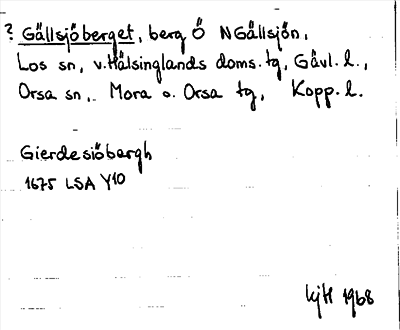 ? Gällsjöberget, berg Ö NGällsjön,
Los sn, v. Hälsinglands doms. tg, Gävl. l.,
Orsa sn, Mora o. Orsa tg, Kopp. l.
Gierdesiöbergh
1675 LSA Y10
KjH 1968